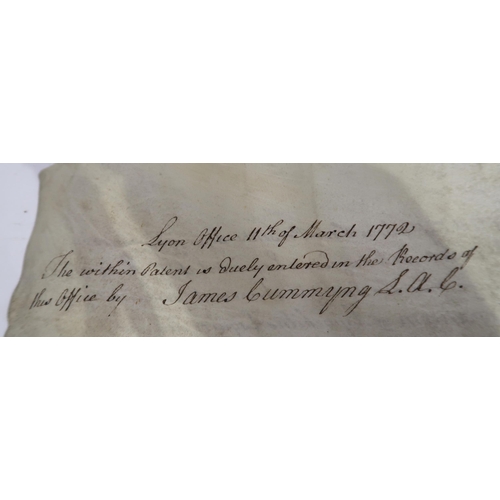 Lyon Office 11th of March 1772
The within Patent is duely entered in the Records of
this Office by James Cummyng L.A.C.